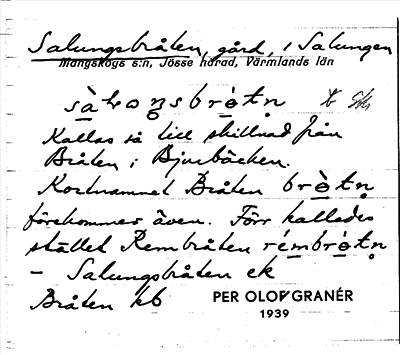 Salungsbråten, gård, i Salungen
Mangskogs s:n, Jösse härad, Värmlands län
Kallas så till skillnad från
Bråten i Bjurbäcken.
Kortnamnet Bråten brò̱tṇ
förekommer även. Förr kallades
stället Rembråten rémbrò̱tṇ
– Salungsbråten ek
Bråten kb
PER OLOF GRANÉR
1939